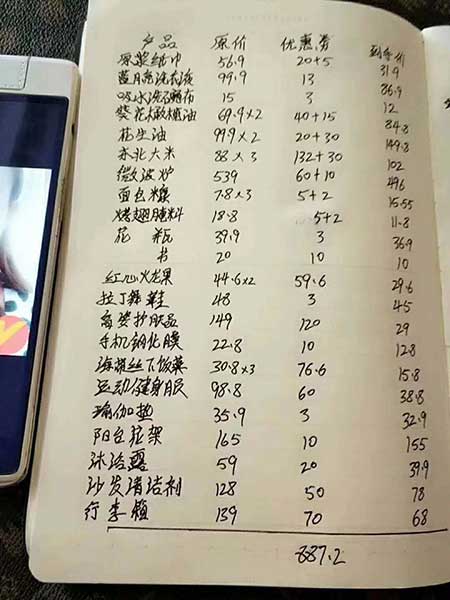 产品 原价 优惠券 到手价
原浆纸巾 56.9 20+5 31.9
蓝月亮洗衣液 99.9 13 86.9
吸水洗碗布 15 3 12
葵花橄榄油 69.9×2 40+15 84.8
花生油 99.9×2 20+30 149.8
东北大米 88×3 132+30 102
微波炉 539 60+10 496
面包糠 7.8×3 5+2 15.55
烤翅腌料 18.8 5+2 11.8
花瓶 39.9 3 36.9
书 20 10 10
红心火龙果 44.6×2 59.6 29.6
拉丁舞鞋 48 3 45
护肤品 149 120 29
手机钢化膜 22.8 10 12.8
海螺丝下饭菜 30.8×3 76.6 15.8
运动健身服 98.8 60 38.8
瑜伽垫 35.9 3 32.9
阳台花架 165 10 155
沐浴露 59 20 39.9
沙发清洁剂 128 50 78
行李箱 139 70 68
887.2